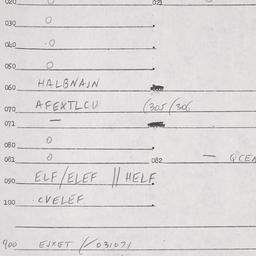 020 0 021
030 0
040 0
050 0
060 HALBNAJN
070 AFEXTLCU (305/306
071 —
080 0
081 0 082 — QCEA
090 ELF/ELEF || HELF
100 CVELEF
900 EJXET (/03107)